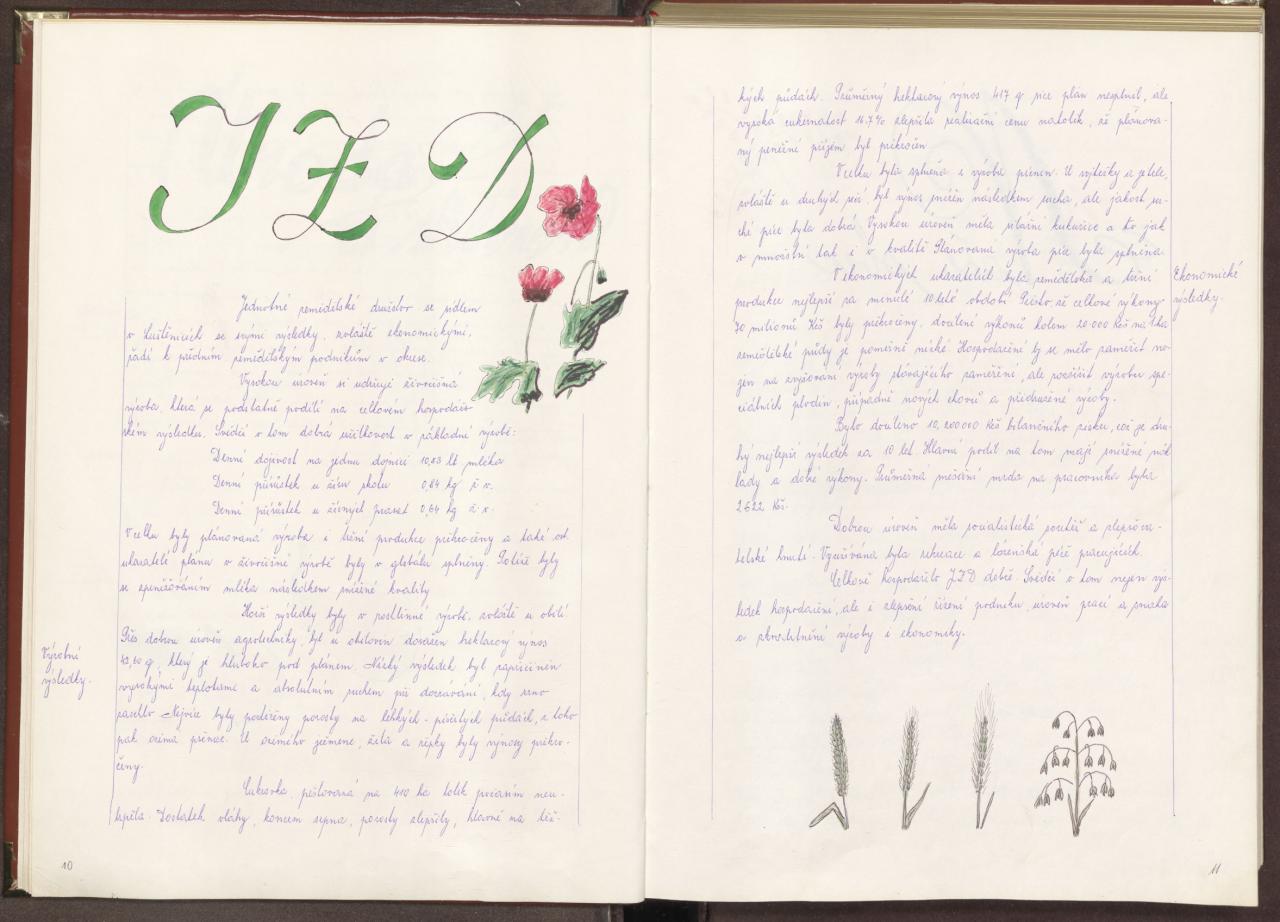 JZD
Jednotné zemědělské družstvo se sídlem
v Luštěnicích se svými výsledky, zvláště ekonomickými,
řadí k předním zemědělským podnikům v okrese.
Vysokou úroveň si udržuje živočišná
výroba, která se podstatně podílí na celkovém hospodář-
ském výsledku. Svědčí o tom dobrá užitkovost v základní výrobě:
Denní dojivost na jednu dojnici 10,83 lt mléka
Denní přírůstek u žíru skotu 0,84 kg ž. v.
Denní přírůstek u žírných prasat 0,64 kg ž. v.
V celku byly plánovaná výroba i tržní produkce překročeny a také ost.
ukazatelé plánu v živočišné výrobě byly v globálu splněny. Potíže byly
se zpeněžováním mléka následkem snížené kvality
Horší výsledky byly v rostlinné výrobě, zvláště u obilí.
Přes dobrou úroveň agrotechniky, byl u obilovin dosažen hektarový výnos
42,60 q, který je hluboko pod plánem. Nízký výsledek byl zapříčiněn
vysokými teplotami a absolutním suchem při dozrávání, kdy zrno
zaschlo. Nejvíce byly postiženy porosty na lehkých - písčitých půdách, z toho
pak ozimá pšenice. U ozimého ječmene, žita a řepky byly výnosy překro-
čeny.
Výrobní
výsledky.
Cukrovka, pěstovaná na 410 ha tolik počasím neu-
trpěla. Dostatek vláhy, koncem srpna, porosty zlepšily, hlavně na těž-
10
kých půdách. Průměrný hektarový výnos 417 q sice plán nesplnil, ale
vysoká cukernatost 16.7% zlepšila realizační cenu natolik, že plánova-
ný peněžní příjem byl překročen.
V celku byla splněna i výroba pícnin. U vojtěšky a jetele,
zvláště u druhých sečí, byl výnos snížen následkem sucha, ale jakost su-
ché píce byla dobrá. Vysokou úroveň měla silážní kukuřice a to jak
v množství tak i v kvalitě. Plánovaná výroba píce byla splněna.
V ekonomických ukazatelích byla zemědělská a tržní
produkce nejlepší za minulé 10 leté období. Přesto, že celkové výkony
70 milionů Kčs byly překročeny, docílení výkonů kolem 20.000 Kčs na 1 ha
zemědělské půdy je poměrně nízké. Hospodaření by se mělo zaměřit ne-
jen na zvyšování výroby stávajícího zaměření, ale rozšířit výrobu spe-
ciálních plodin, případně nových chovů a přidružené výroby.
Ekonomické
výsledky.
Bylo docíleno 10,200000 Kčs bilančního zisku, což je dru-
hý nejlepší výsledek za 10 let. Hlavní podíl na tom mají snížené nák-
lady a dobré výkony. Průměrná měsíční mzda na pracovníka byla
2622 Kčs.
Dobrou úroveň měla socialistická soutěž a zlepšova-
telské hnutí. Vyučívána byla rekreace a lázeňská péče pracujících.
Celkově hospodařilo JZD dobře. Svědčí o tom nejen výs-
ledek hospodaření, ale i zlepšení řízení podniku, úroveň prací a snaha
o zkvalitnění výroby i ekonomiky.
11